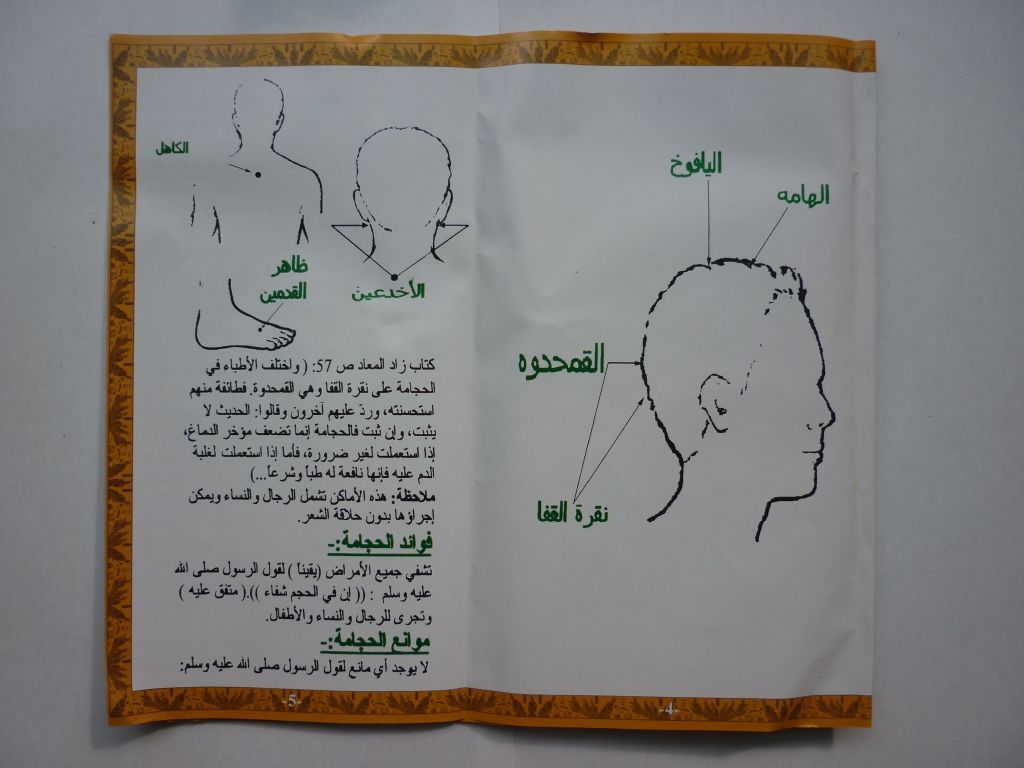 اليافوخ
الهامه
القمحدوه
نقرة القفا
-4-
الكاهل
الأخدعين
ظاهر
القدمين
كتاب زاد المعاد ص 57: ( واختلف الأطباء في
الحجامة على نقرة القفا وهي القمحدوة. فطائفة منهم
استحسنته، وردّ عليهم آخرون وقالوا: الحديث لا
يثبت، وإن ثبت فالحجامة إنما تضعف مؤخر الدماغ،
إذا استعملت لغير ضرورة، فأما إذا استعملت لغلبة
الدم عليه فإنها نافعة له طباً وشرعاً...)
ملاحظة: هذه الأماكن تشمل الرجال والنساء ويمكن
إجراؤها بدون حلاقة الشعر.
فوائد الحجامة:-
تشفي جميع الأمراض (يقيناً ) لقول الرسول صلى الله
عليه وسلم : (( إن في الحجم شفاء )).( متفق عليه )
وتجرى للرجال والنساء والأطفال.
موانع الحجامة:-
لا يوجد أي مانع لقول الرسول صلى الله عليه وسلم:
-5-